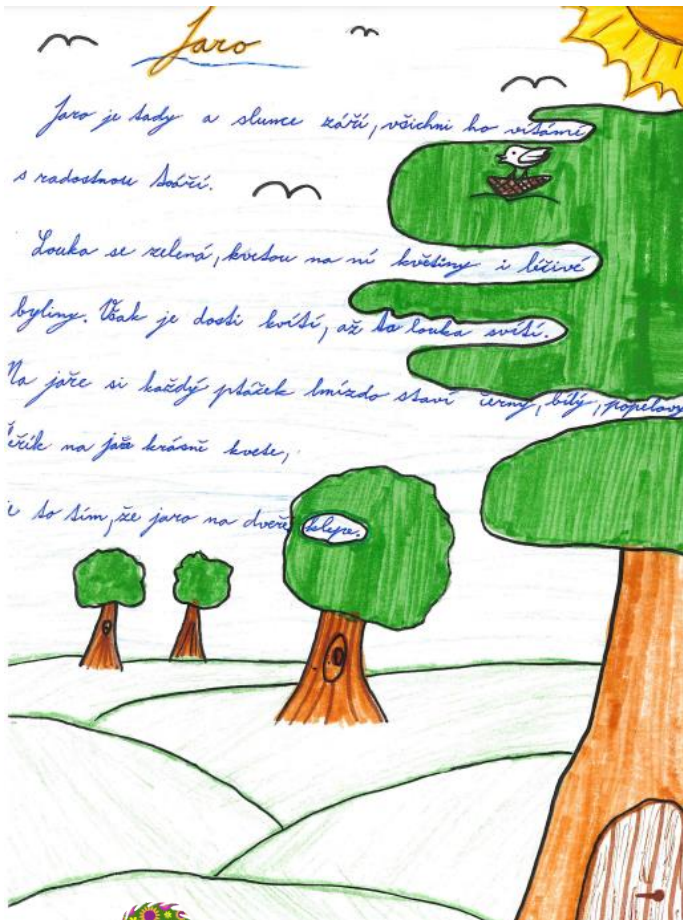 Jaro
Jaro je tady a slunce září, všichni ho vítámé
s radostnou tváří.
Louka se zelená, kvetou na ní květiny i léčivé
byliny. Však je dosti kvítí, až ta louka svítí.
Na jaře si každý ptáček hnízdo staví černý, bílý, popelavý
eřík na jaře krásně kvete,
je to tím, že jaro na dveře klepe.